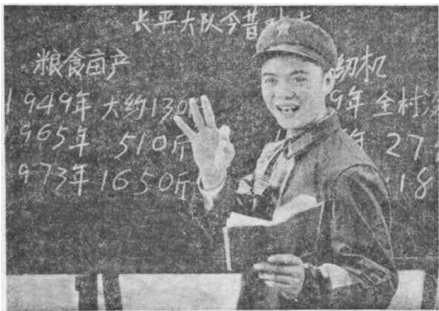 长平大队今昔
粮食亩产
1949年 大约130
1965年 510斤
1973年 1650斤
机
9年 全村
年 27
18